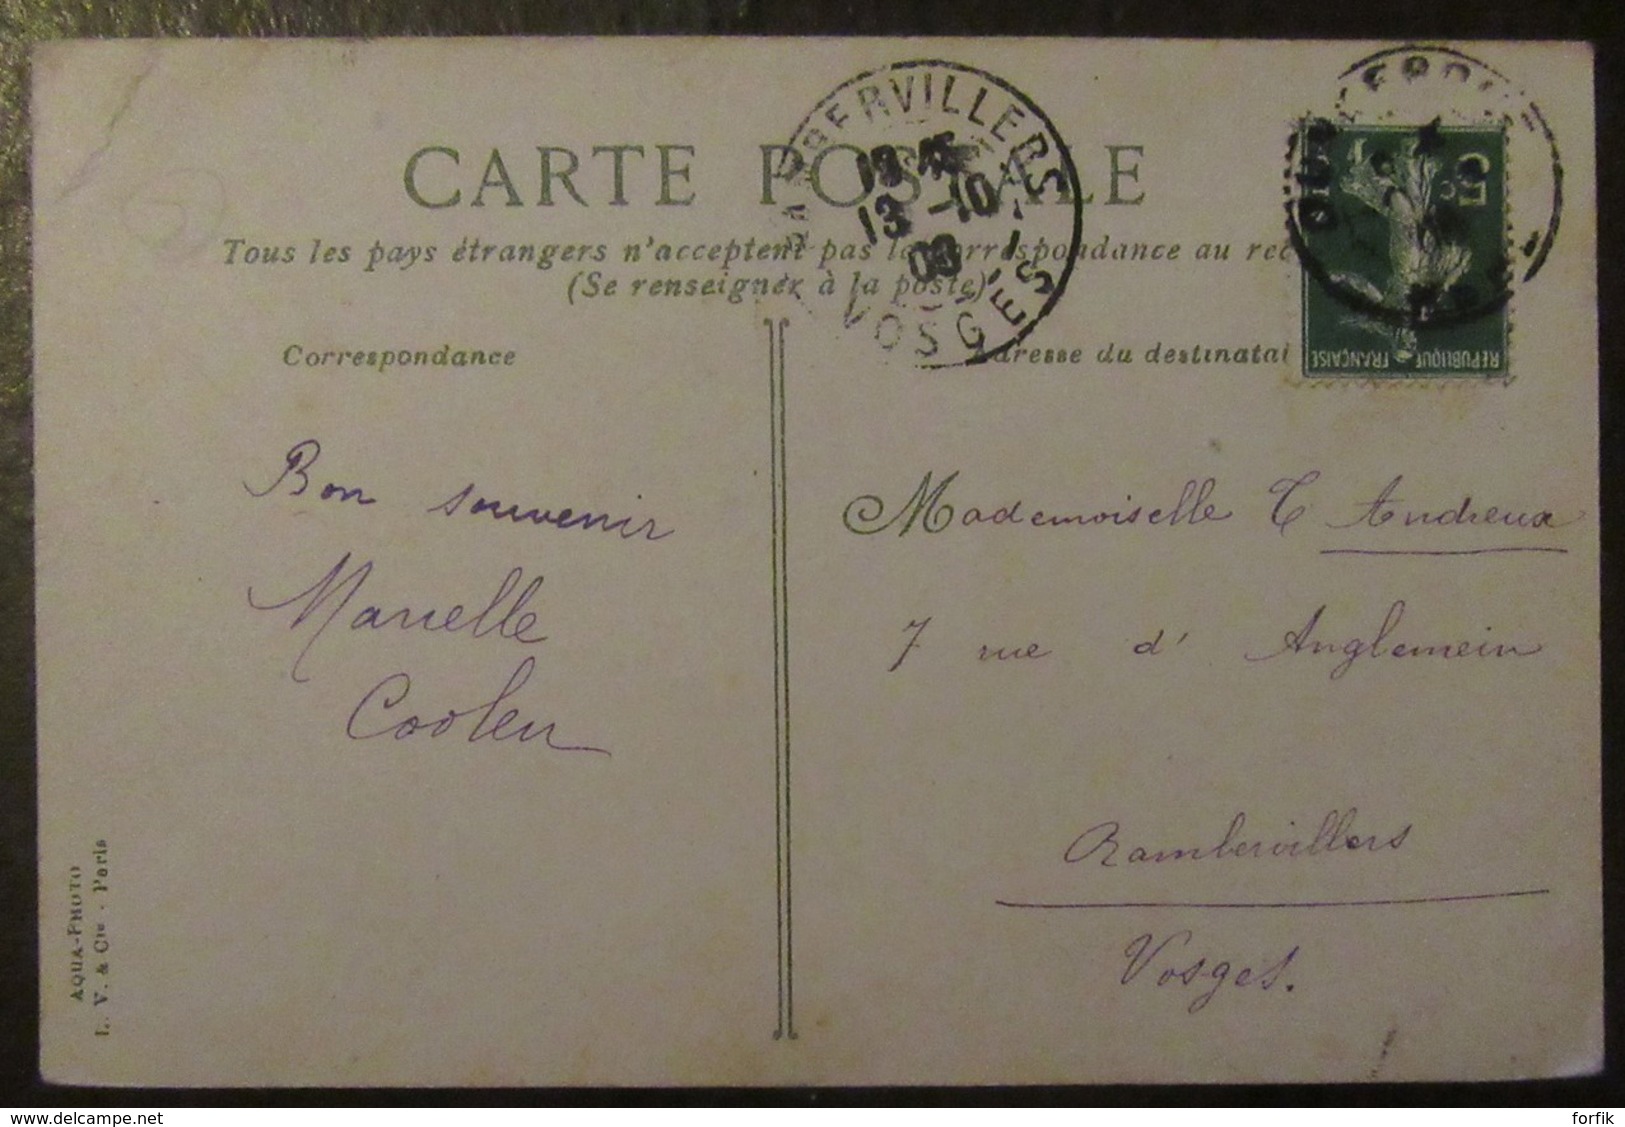 CARTE POSTALE
Tous les pays étrangers n'acceptent pas la correspondance au rec
(Se renseigner à la poste)
Correspondance
Adresse du destinatai
RAMBERVILLERS
13 -10
09
VOSGES
5c
REPUBLIQUE FRANÇAISE
Bon souvenir
Marielle
Coolen
Mademoiselle C Andreux
7 rue d' Anglemein
Rambervillers
Vosges.
AQUA-PHOTO
L. V. & Cie - Paris
delcampe.net
forfik